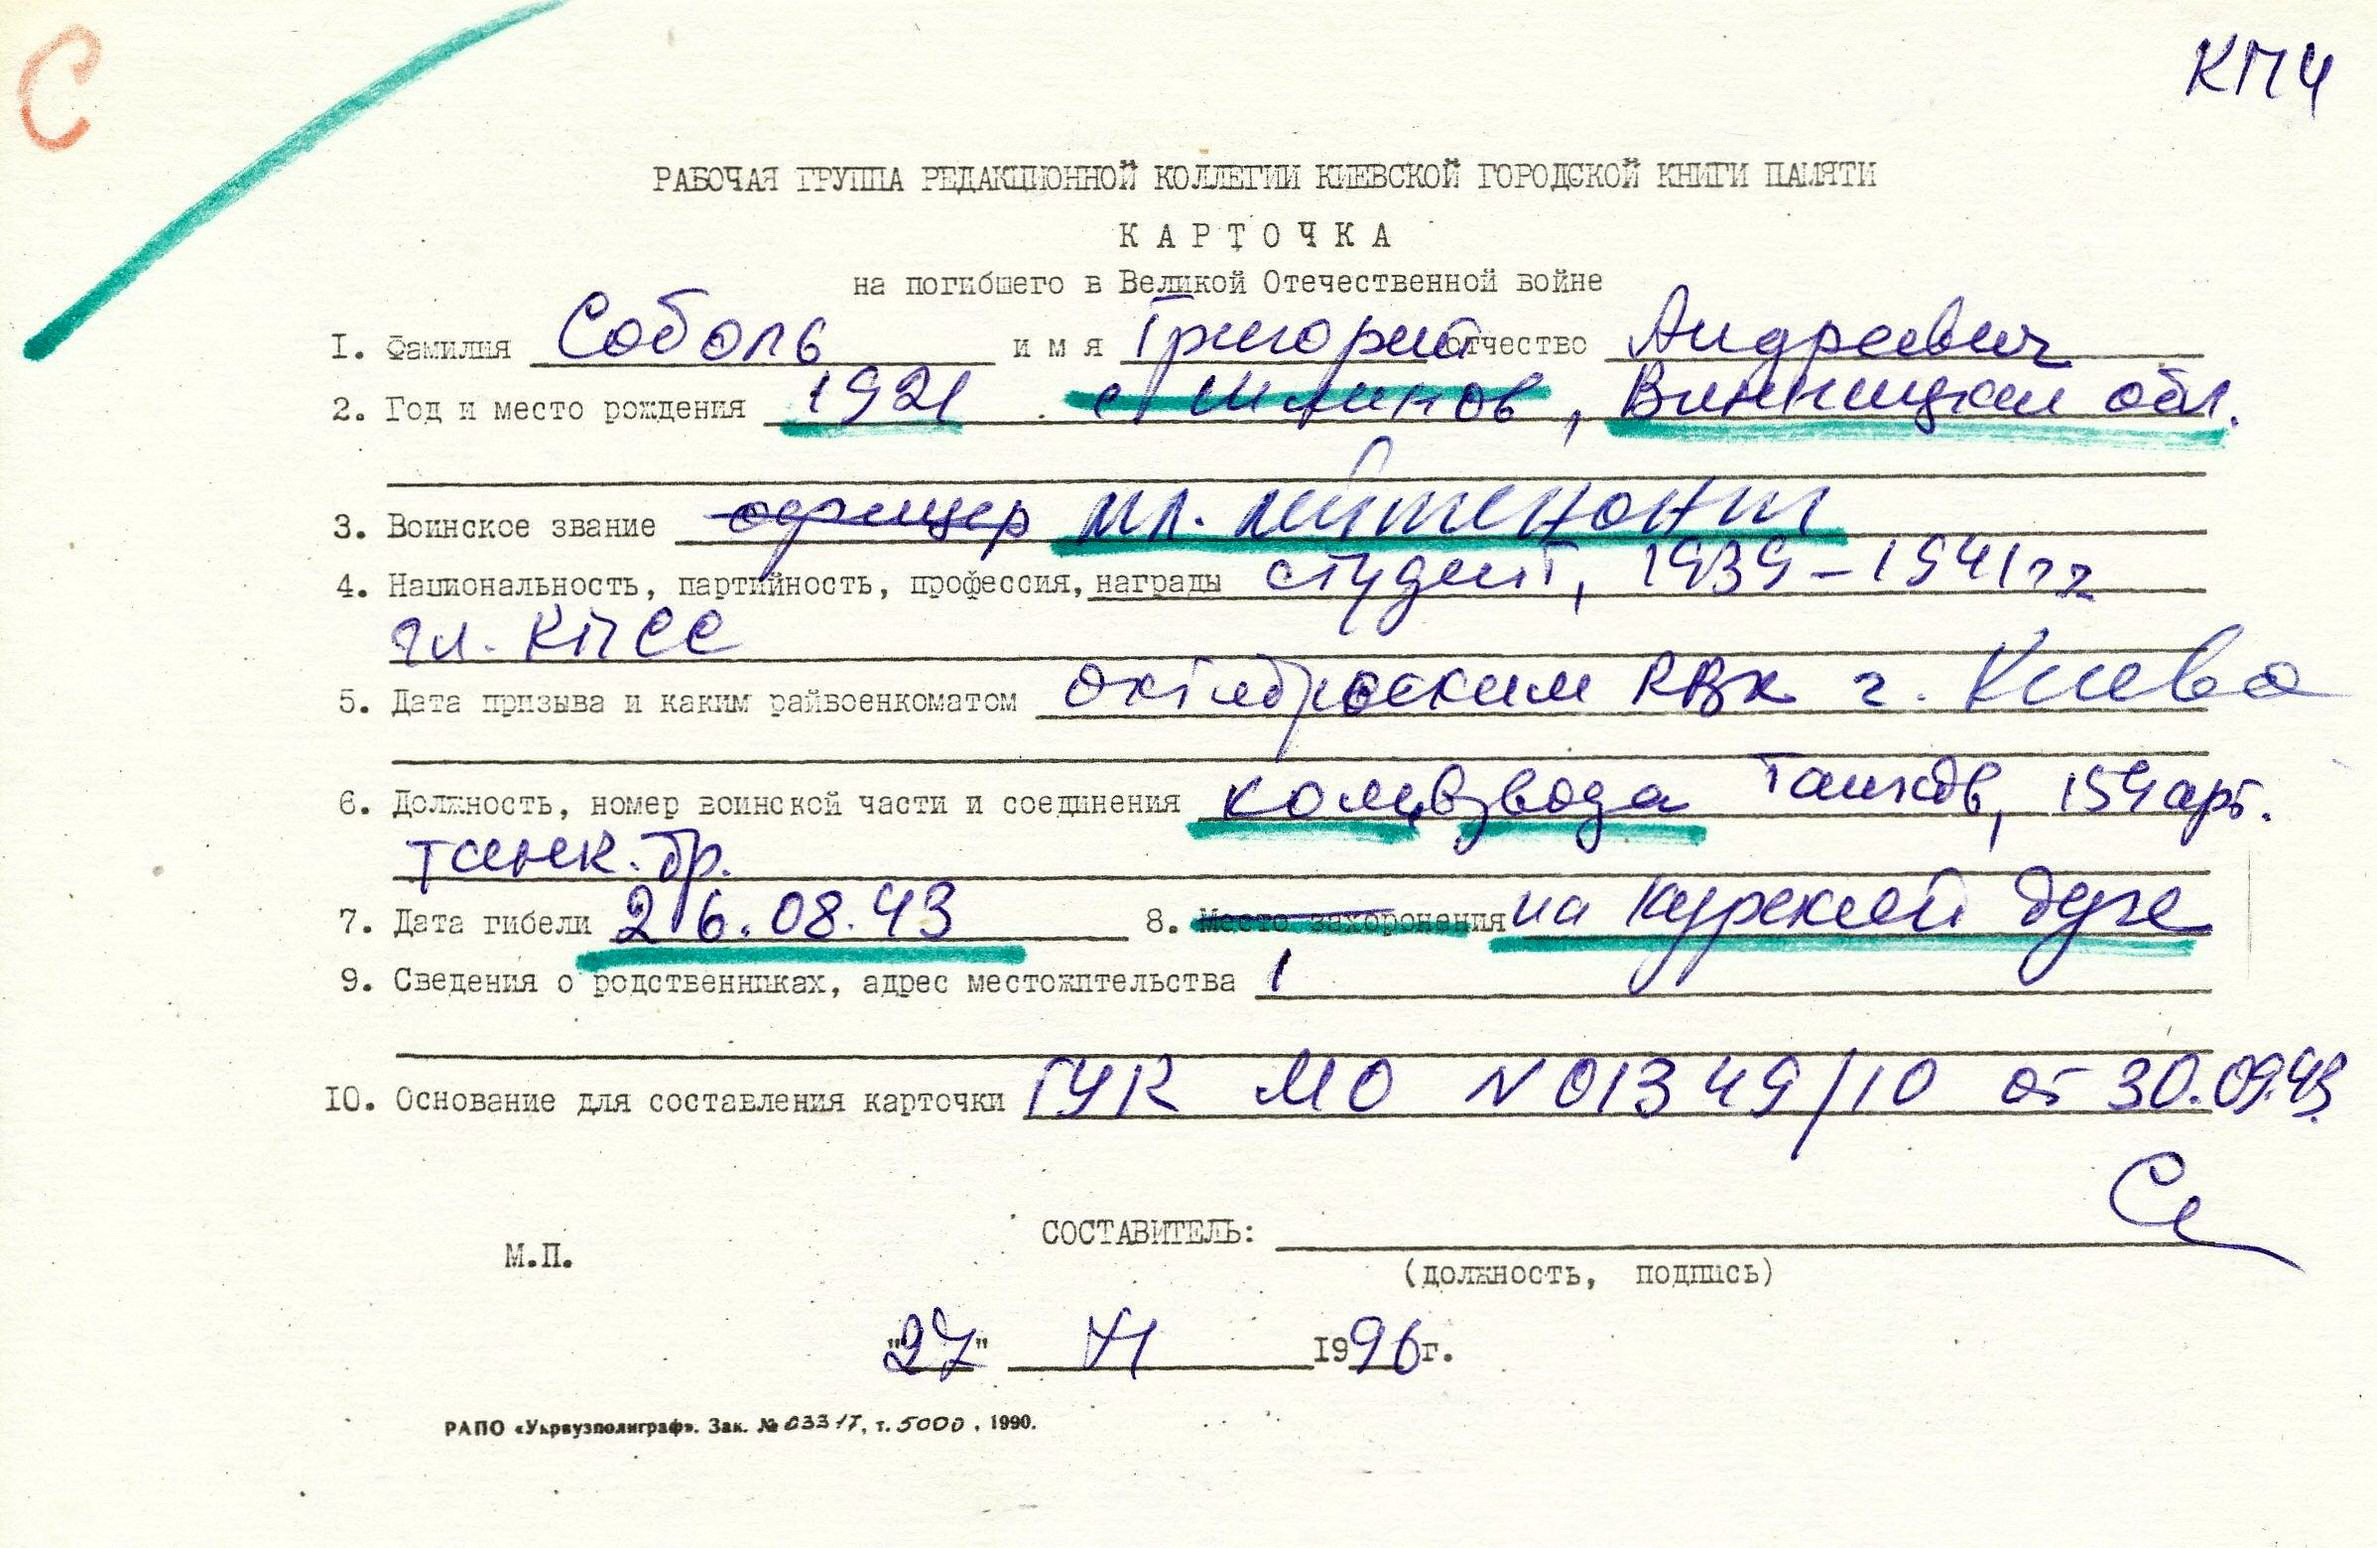 С
КПИ
РАБОЧАЯ ГРУППА РЕДАКЦИОННОЙ КОЛЛЕГИИ КИЕВСКОЙ ГОРОДСКОЙ КНИГИ ПАМЯТИ
КАРТОЧКА
на погибшего в Великой Отечественной войне
I. Фамилия Соболь имя Григорий отчество Андреевич
2. Год и место рождения 1921 с Шлинов, Винницкая обл.
3. Воинское звание офицер мл. лейтенант
4. Национальность, партийность, профессия, награды студент, 1939-1941гг
чл. КПСС
5. Дата призыва и каким райвоенкоматом Октябрьским РВК г. Киева
6. Должность, номер воинской части и соединения ком. взвода танков, 154 арт.
танк. бр.
7. Дата гибели 26.08.43 8. Место захоронения на Курской дуге
9. Сведения о родственниках, адрес местожительства
10. Основание для составления карточки ГУК МО N01349/10 от 30.09.43
СОСТАВИТЕЛЬ:
М.П.
(должность, подпись)
"27" VI 1996г.
РАПО «Укрвузполиграф». Зак. № 03317, т. 5000, 1990.